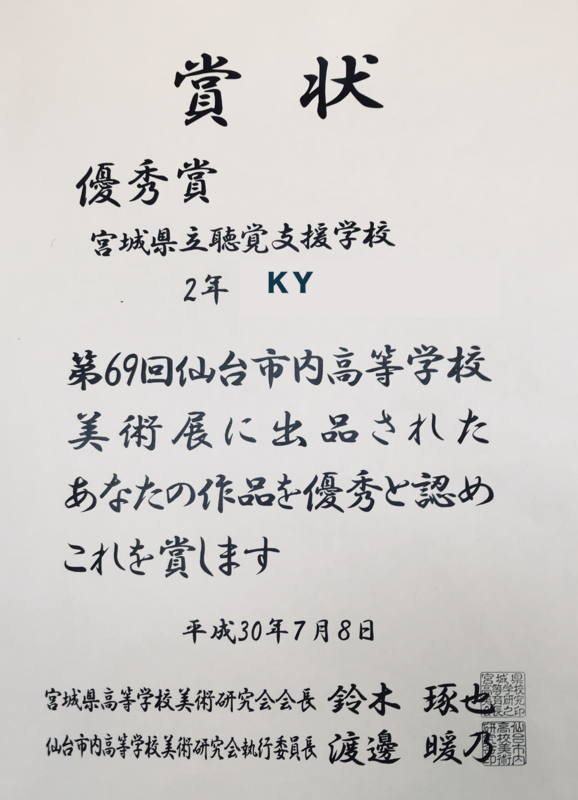 賞状
優秀賞
宮城県立聴覚支援学校
2年 KY
第69回仙台市内高等学校
美術展に出品された
あなたの作品を優秀と認め
これを賞します
平成30年7月8日
宮城県高等学校美術研究会会長 鈴木 琢也
仙台市内高等学校美術研究会執行委員長 渡邊 暖乃